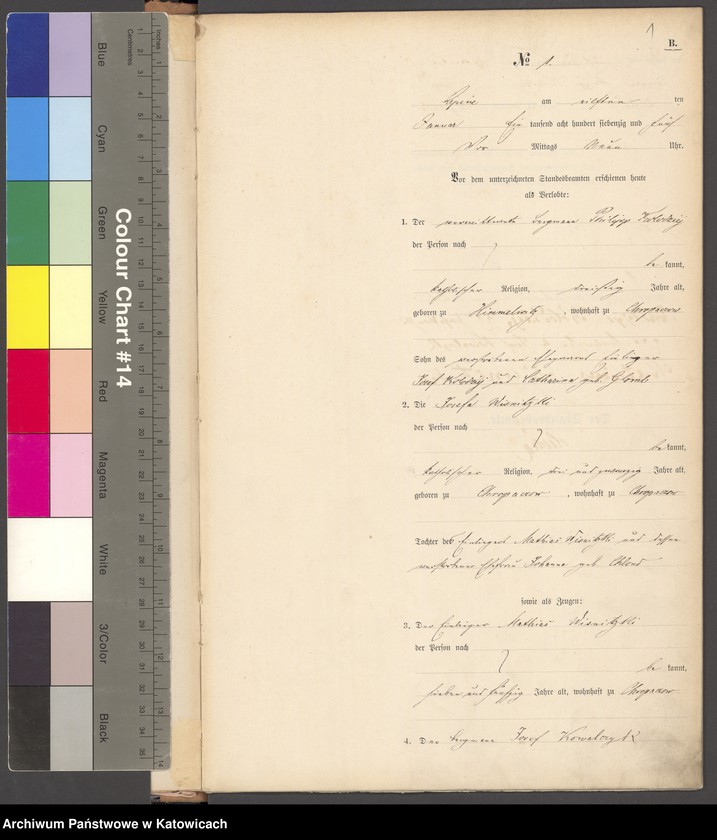 Blue
Cyan
Green
Yellow
Red
Magenta
White
3/Color
Black
Colour Chart #14
Centimetres
Inches
1
B.
№ 1.
Lipine am eilften ten
Januar Ein tausend acht hundert siebenzig und fünf
Vor Mittags Neun Uhr.
Vor dem unterzeichneten Standesbeamten erschienen heute
als Verlobte:
1. Der verwittwete Bergmann Philipp Kolodziej
der Person nach
be kannt,
katholischer Religion, dreißig Jahre alt,
geboren zu Himmelwitz, wohnhaft zu Chropaczow
Sohn des verstorbenen Einlieger
Josef Kolodziej und Catharina geb.
2. Die Josefa Wisnitzki
der Person nach
be kannt,
katholischer Religion, drei und zwanzig Jahre alt,
geboren zu Chropaczow, wohnhaft zu Chropaczow
Tochter des Einliegers Mathias Wisnitzki und dessen
verstorbenen Ehefrau Johanna geb.
sowie als Zeugen:
3. Der Einlieger Mathias Wisnitzki
der Person nach
be kannt,
sieben und fünfzig Jahre alt, wohnhaft zu Chropaczow
4. Der Bergmann Josef Kowalczyk
Archiwum Państwowe w Katowicach